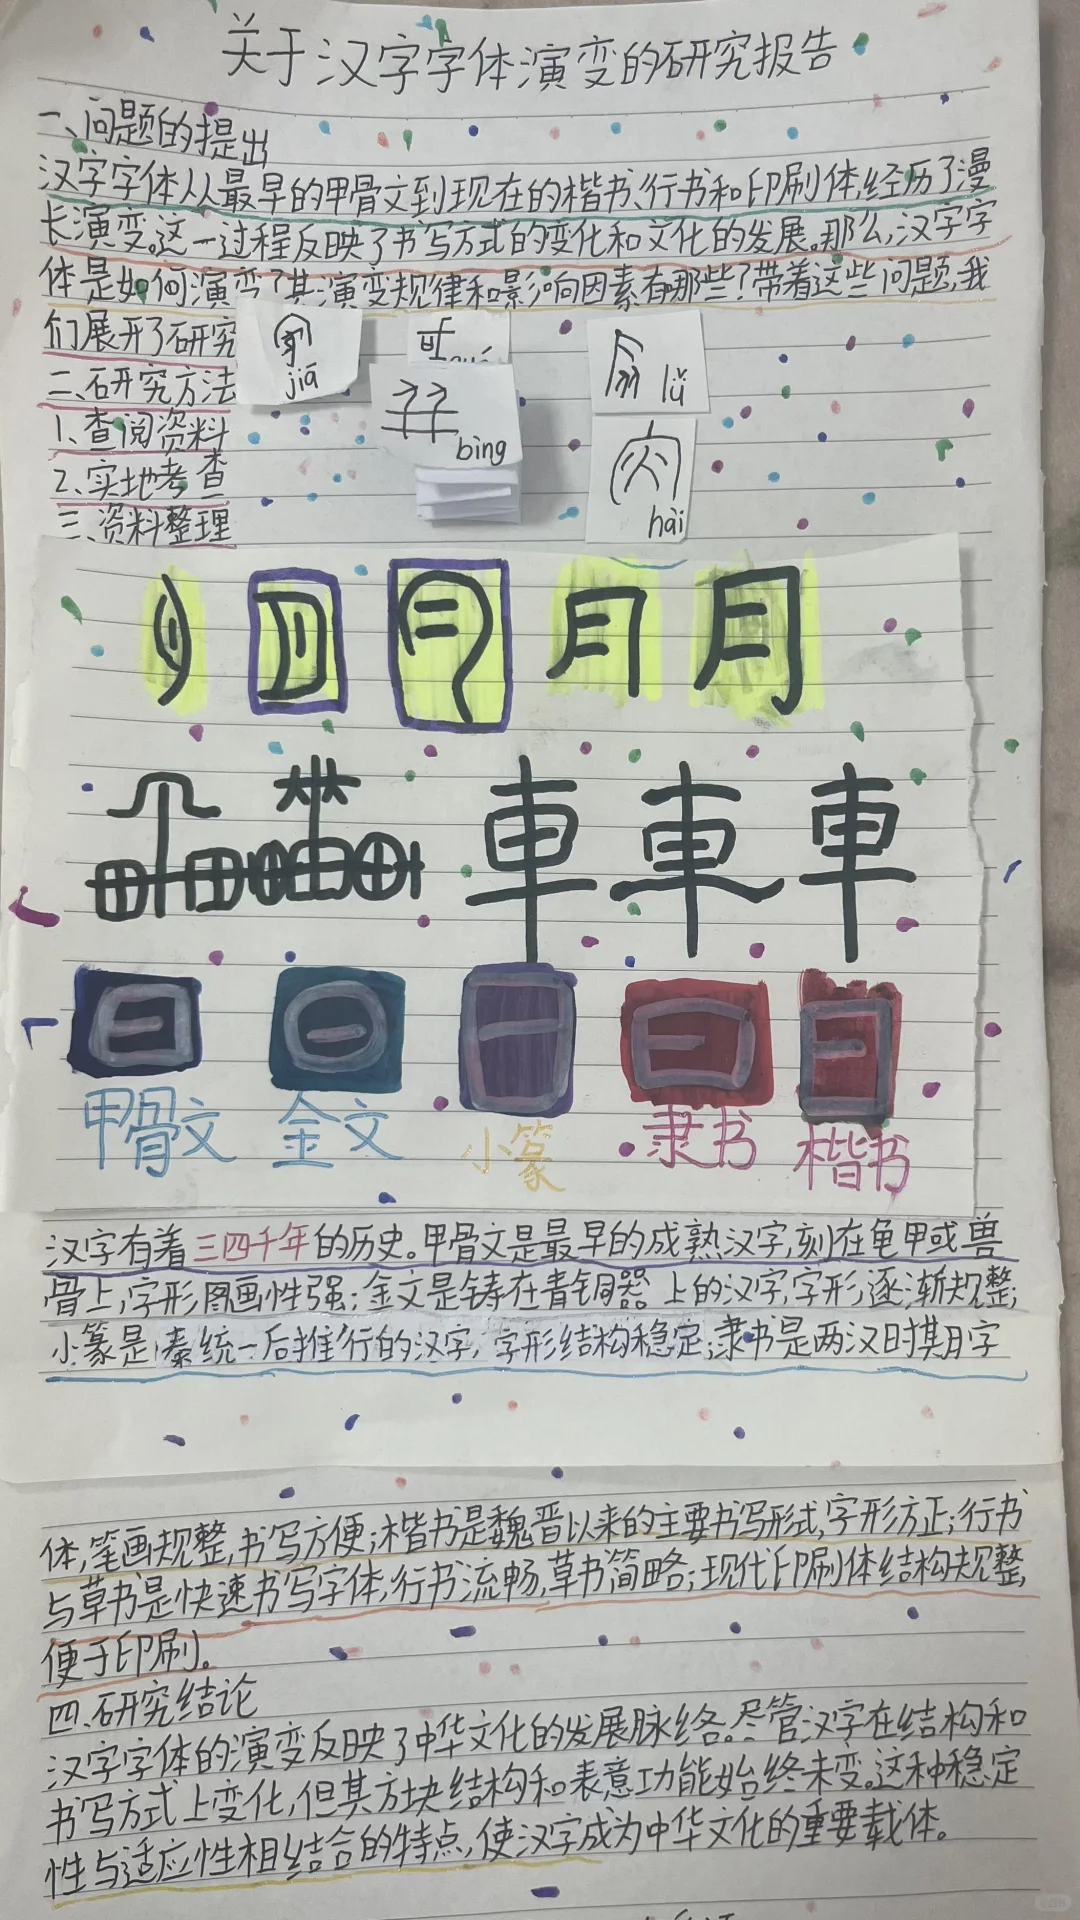 关于汉字字体演变的研究报告
一、问题的提出
汉字字体从最早的甲骨文到现在的楷书、行书和印刷体,经历了漫
长演变。这一过程反映了书写方式的变化和文化的发展。那么,汉字字
体是如何演变?其演变规律和影响因素有哪些?带着这些问题,我
们展开了研究
二、研究方法
1、查阅资料
2、实地考查
三、资料整理
jiā
bìng
lǚ
hài
月 月
車 車 車
日 日 日 日 日
甲骨文 金文 小篆 隶书 楷书
汉字有着三四千年的历史。甲骨文是最早的成熟汉字,刻在龟甲或兽
骨上,字形图画性强;金文是铸在青铜器上的汉字,字形逐渐规整;
小篆是秦统一后推行的汉字,字形结构稳定;隶书是两汉时期字
体,笔画规整,书写方便;楷书是魏晋以来的主要书写形式,字形方正;行书
与草书是快速书写字体,行书流畅,草书简略;现代印刷体结构规整,
便于印刷。
四、研究结论
汉字字体的演变反映了中华文化的发展脉络。尽管汉字在结构和
书写方式上变化,但其方块结构和表意功能始终未变。这种稳定
性与适应性相结合的特点,使汉字成为中华文化的重要载体。